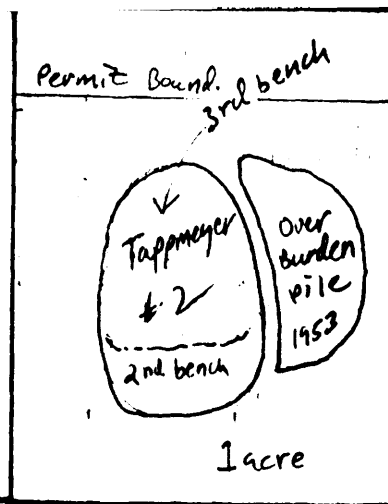 Permit Bound.
3rd bench
Tappmeyer
#2
2nd bench
Over
Burden
pile
1953
1 acre